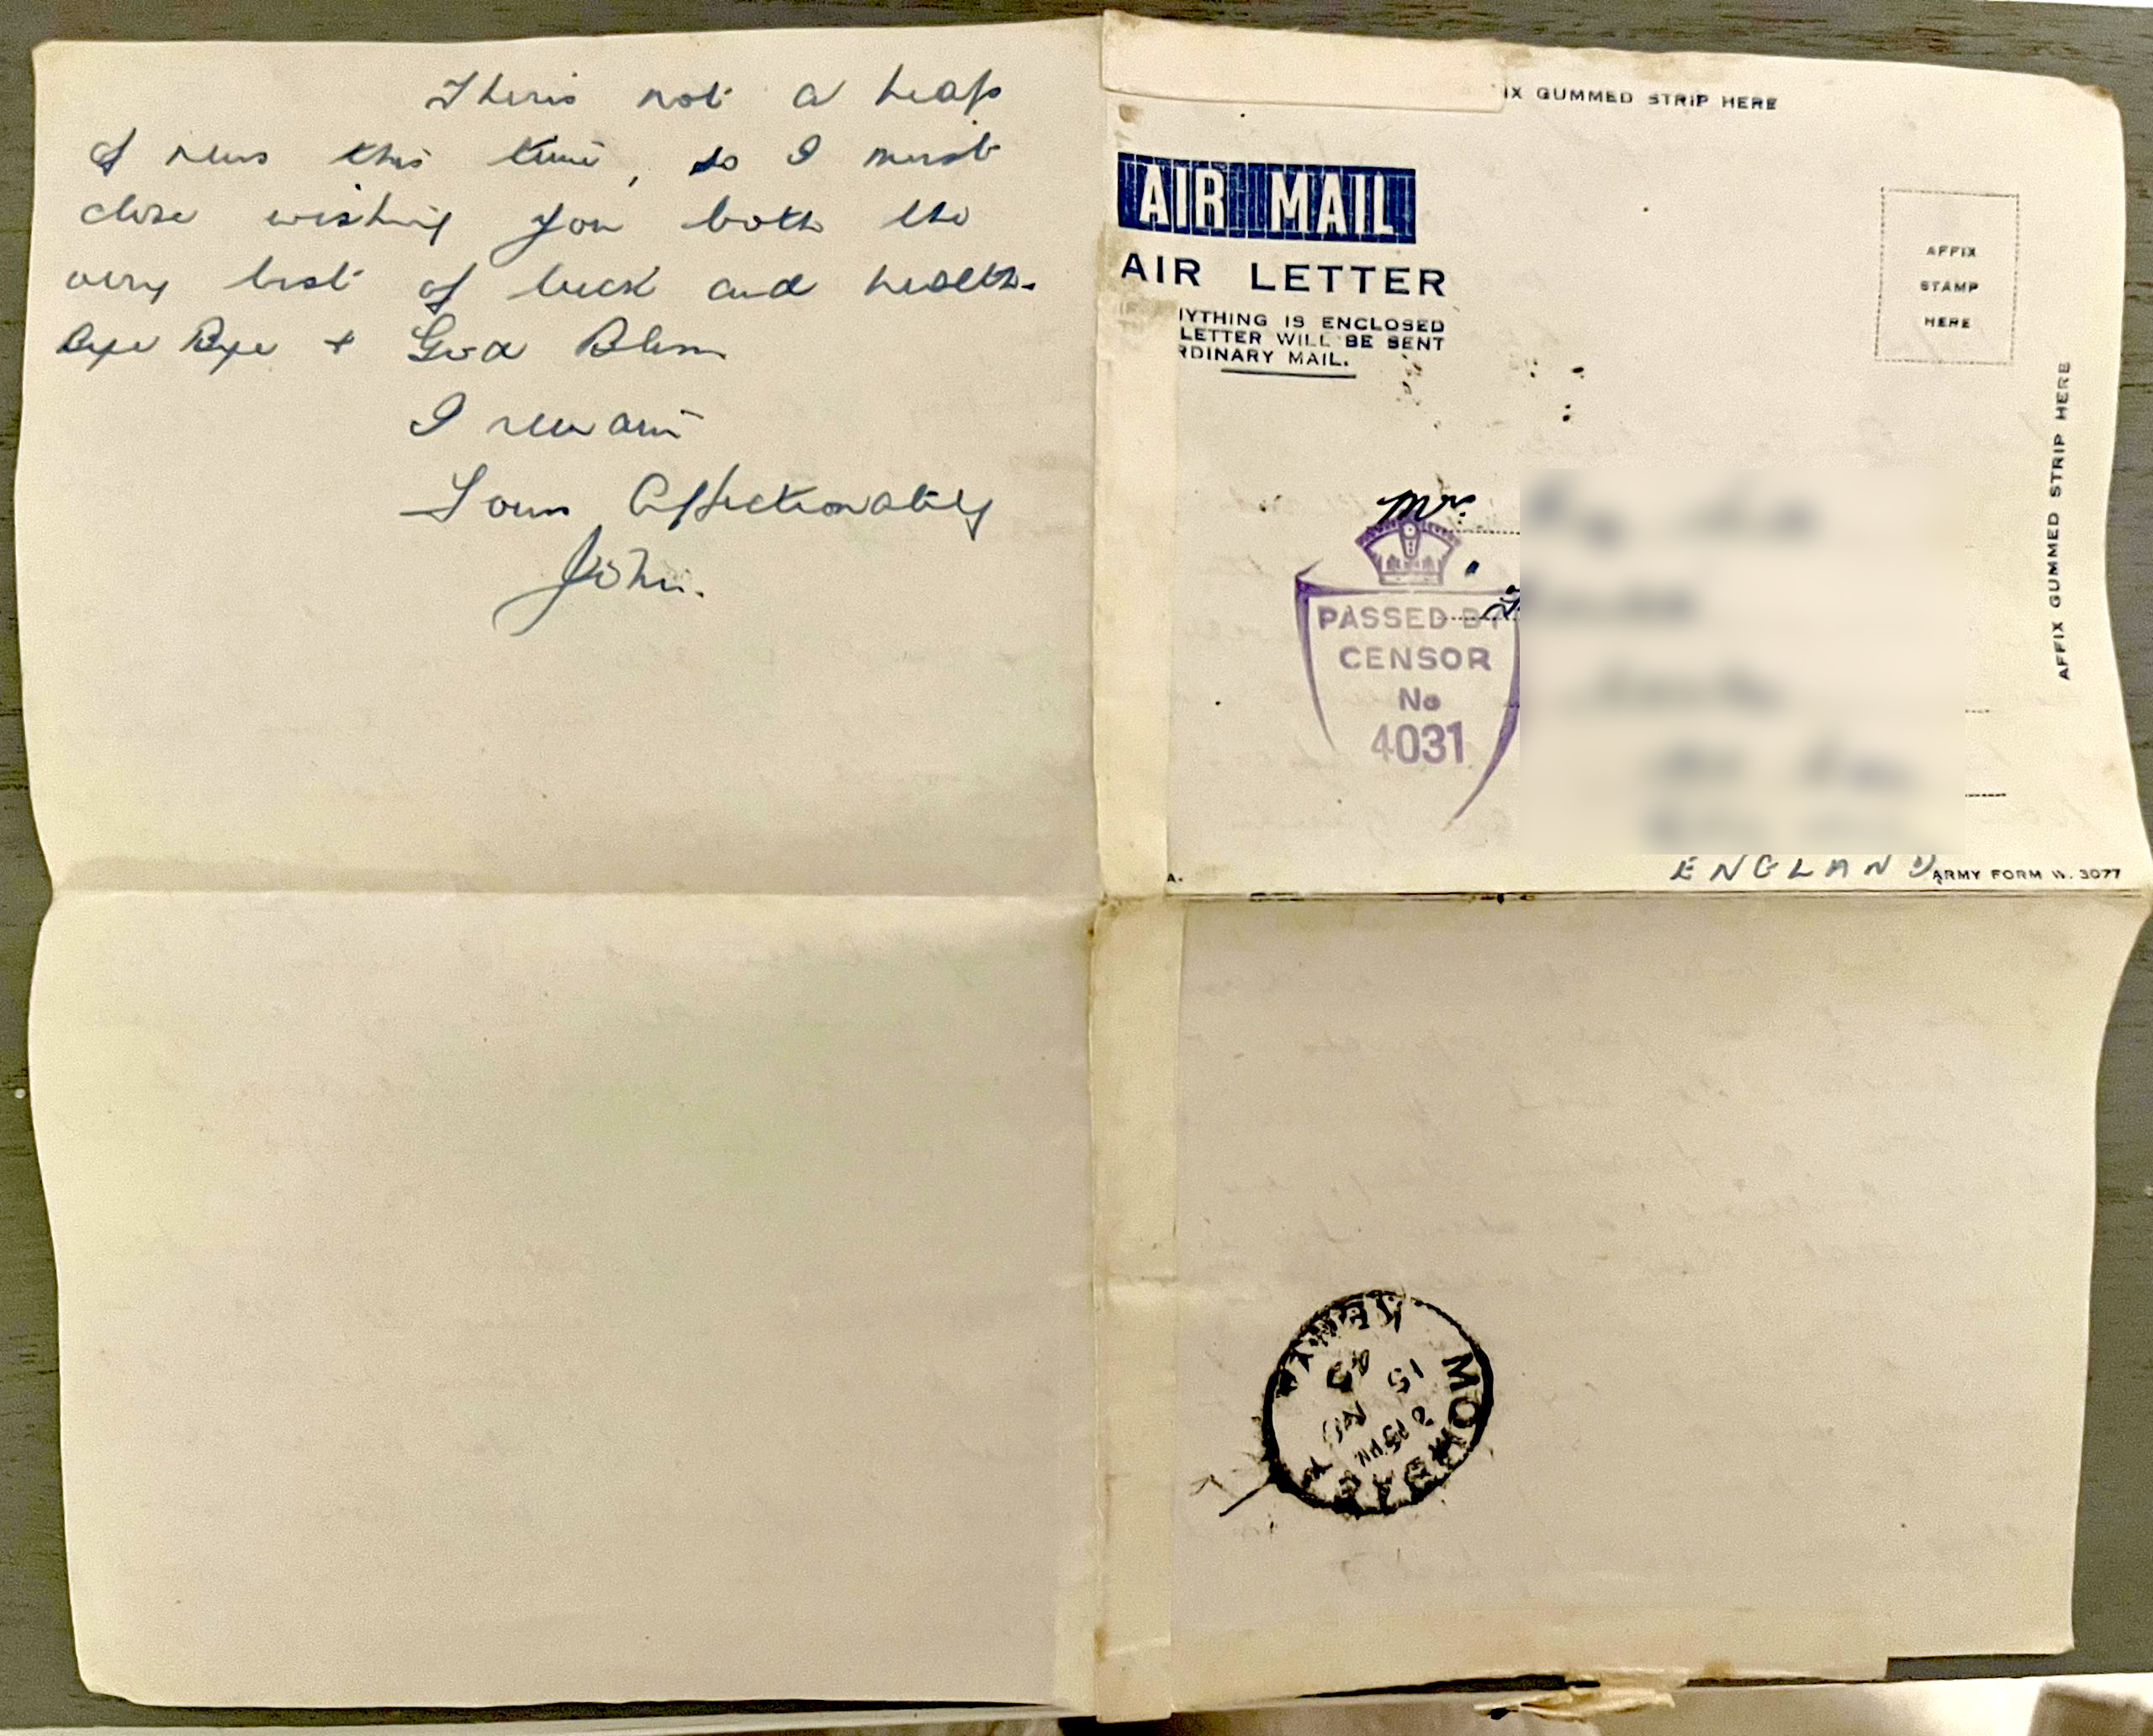 Theris not a heap
of news this time, so I must
close wishing you both the
very best of luck and health.
Bye Bye + God Bless
I remain
Yours Affectionately
John.
IX GUMMED STRIP HERE
AIR MAIL
AIR LETTER
YTHING IS ENCLOSED
LETTER WILL BE SENT
RDINARY MAIL.
AFFIX
STAMP
HERE
AFFIX GUMMED STRIP HERE
Mrs.
PASSED BY
CENSOR
No
4031
ENGLAND
A.
ARMY FORM W. 3077
MOMBASA
KENYA
15
43